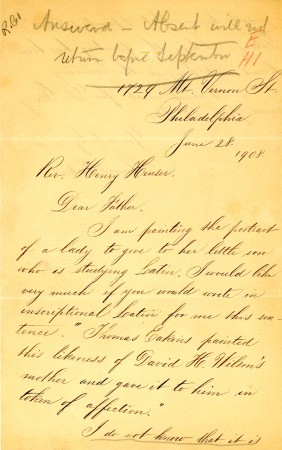 Answered - Absent will not
return before September
1729 Mt. Vernon St.
Philadelphia
June 28. 1908.
Rev. Henry Heuser.
Dear Father.
I am painting the portrait
of a lady to give to her little son
who is studying Latin. I would like
very much if you would write in
inscriptional Latin for me this sen-
tence. "Thomas Eakins painted
this likeness of David H. Wilson's
mother and gave it to him in
token of affection."
I do not know that it is